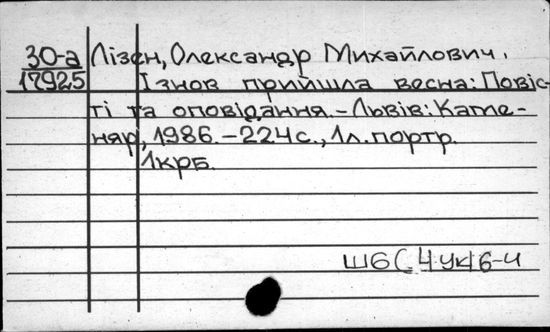 30-а Лізен, Олександр Михайлович.
17925 Ізнов прийшла весна: Повіс-
ті та оповідання. – Львів: Каме-
няр, 1986. – 224с., 1л. портр.
1крб.
Ш6(4Ук)6-4